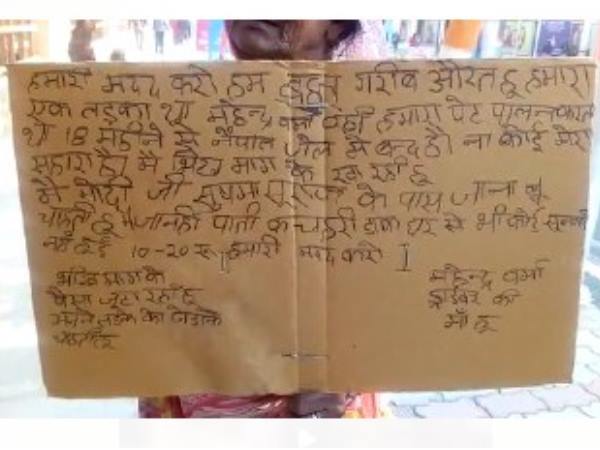 हमारी मदद करो हम बहुत गरीब औरत हू हमारा
एक लड़का था महेन्द्र वर्मा वही हमारा पेट पालन करता
था 18 महीने से नेपाल जेल में बन्द है। ना कोई मेरा
सहारा है। मे भिख माग के रह रही हू
मे मोदी जी सुषमा स्वराज के पास जाना
चाहती हू जा नही पाती कचहरी से भी कोई
10-20 रू हमारी मदद करो
भीख माग के
पैसा जूटा रही हू
अपने लड़के को
चाहती हू
महेन्द्र वर्मा
ड्राईवर की
माँ हू